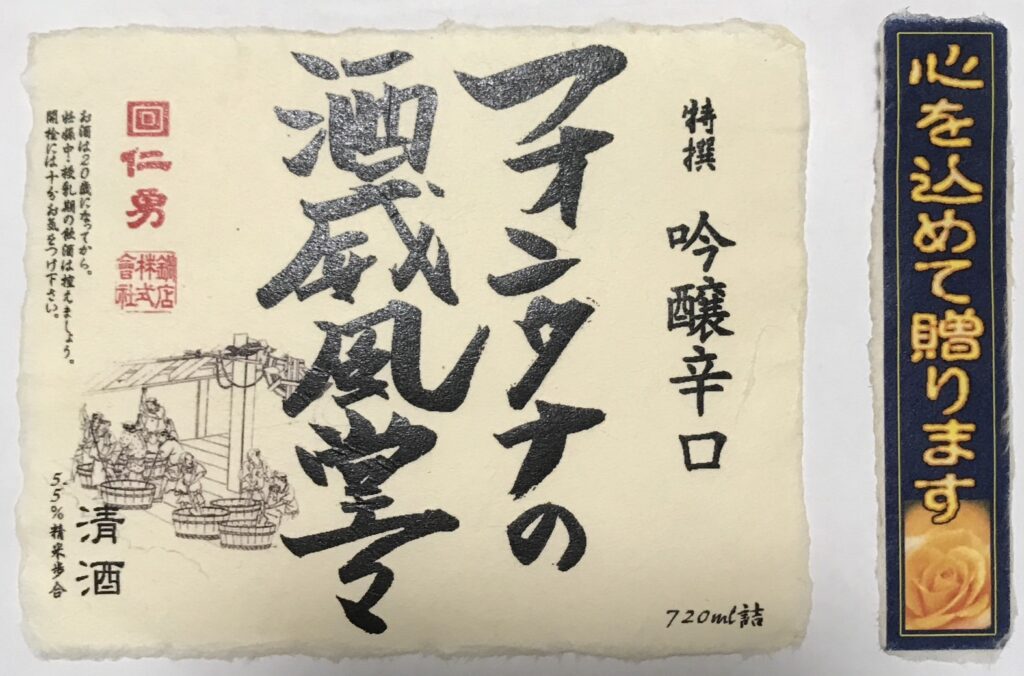 心を込めて贈ります
特撰 吟醸辛口
720ml詰
フォンタナの
酒威風堂々
仁勇
鍋店
株式
會社
お酒は20歳になってから。
妊娠中・授乳期の飲酒は控えましょう。
開栓には十分お気をつけ下さい。
清酒
55%精米歩合